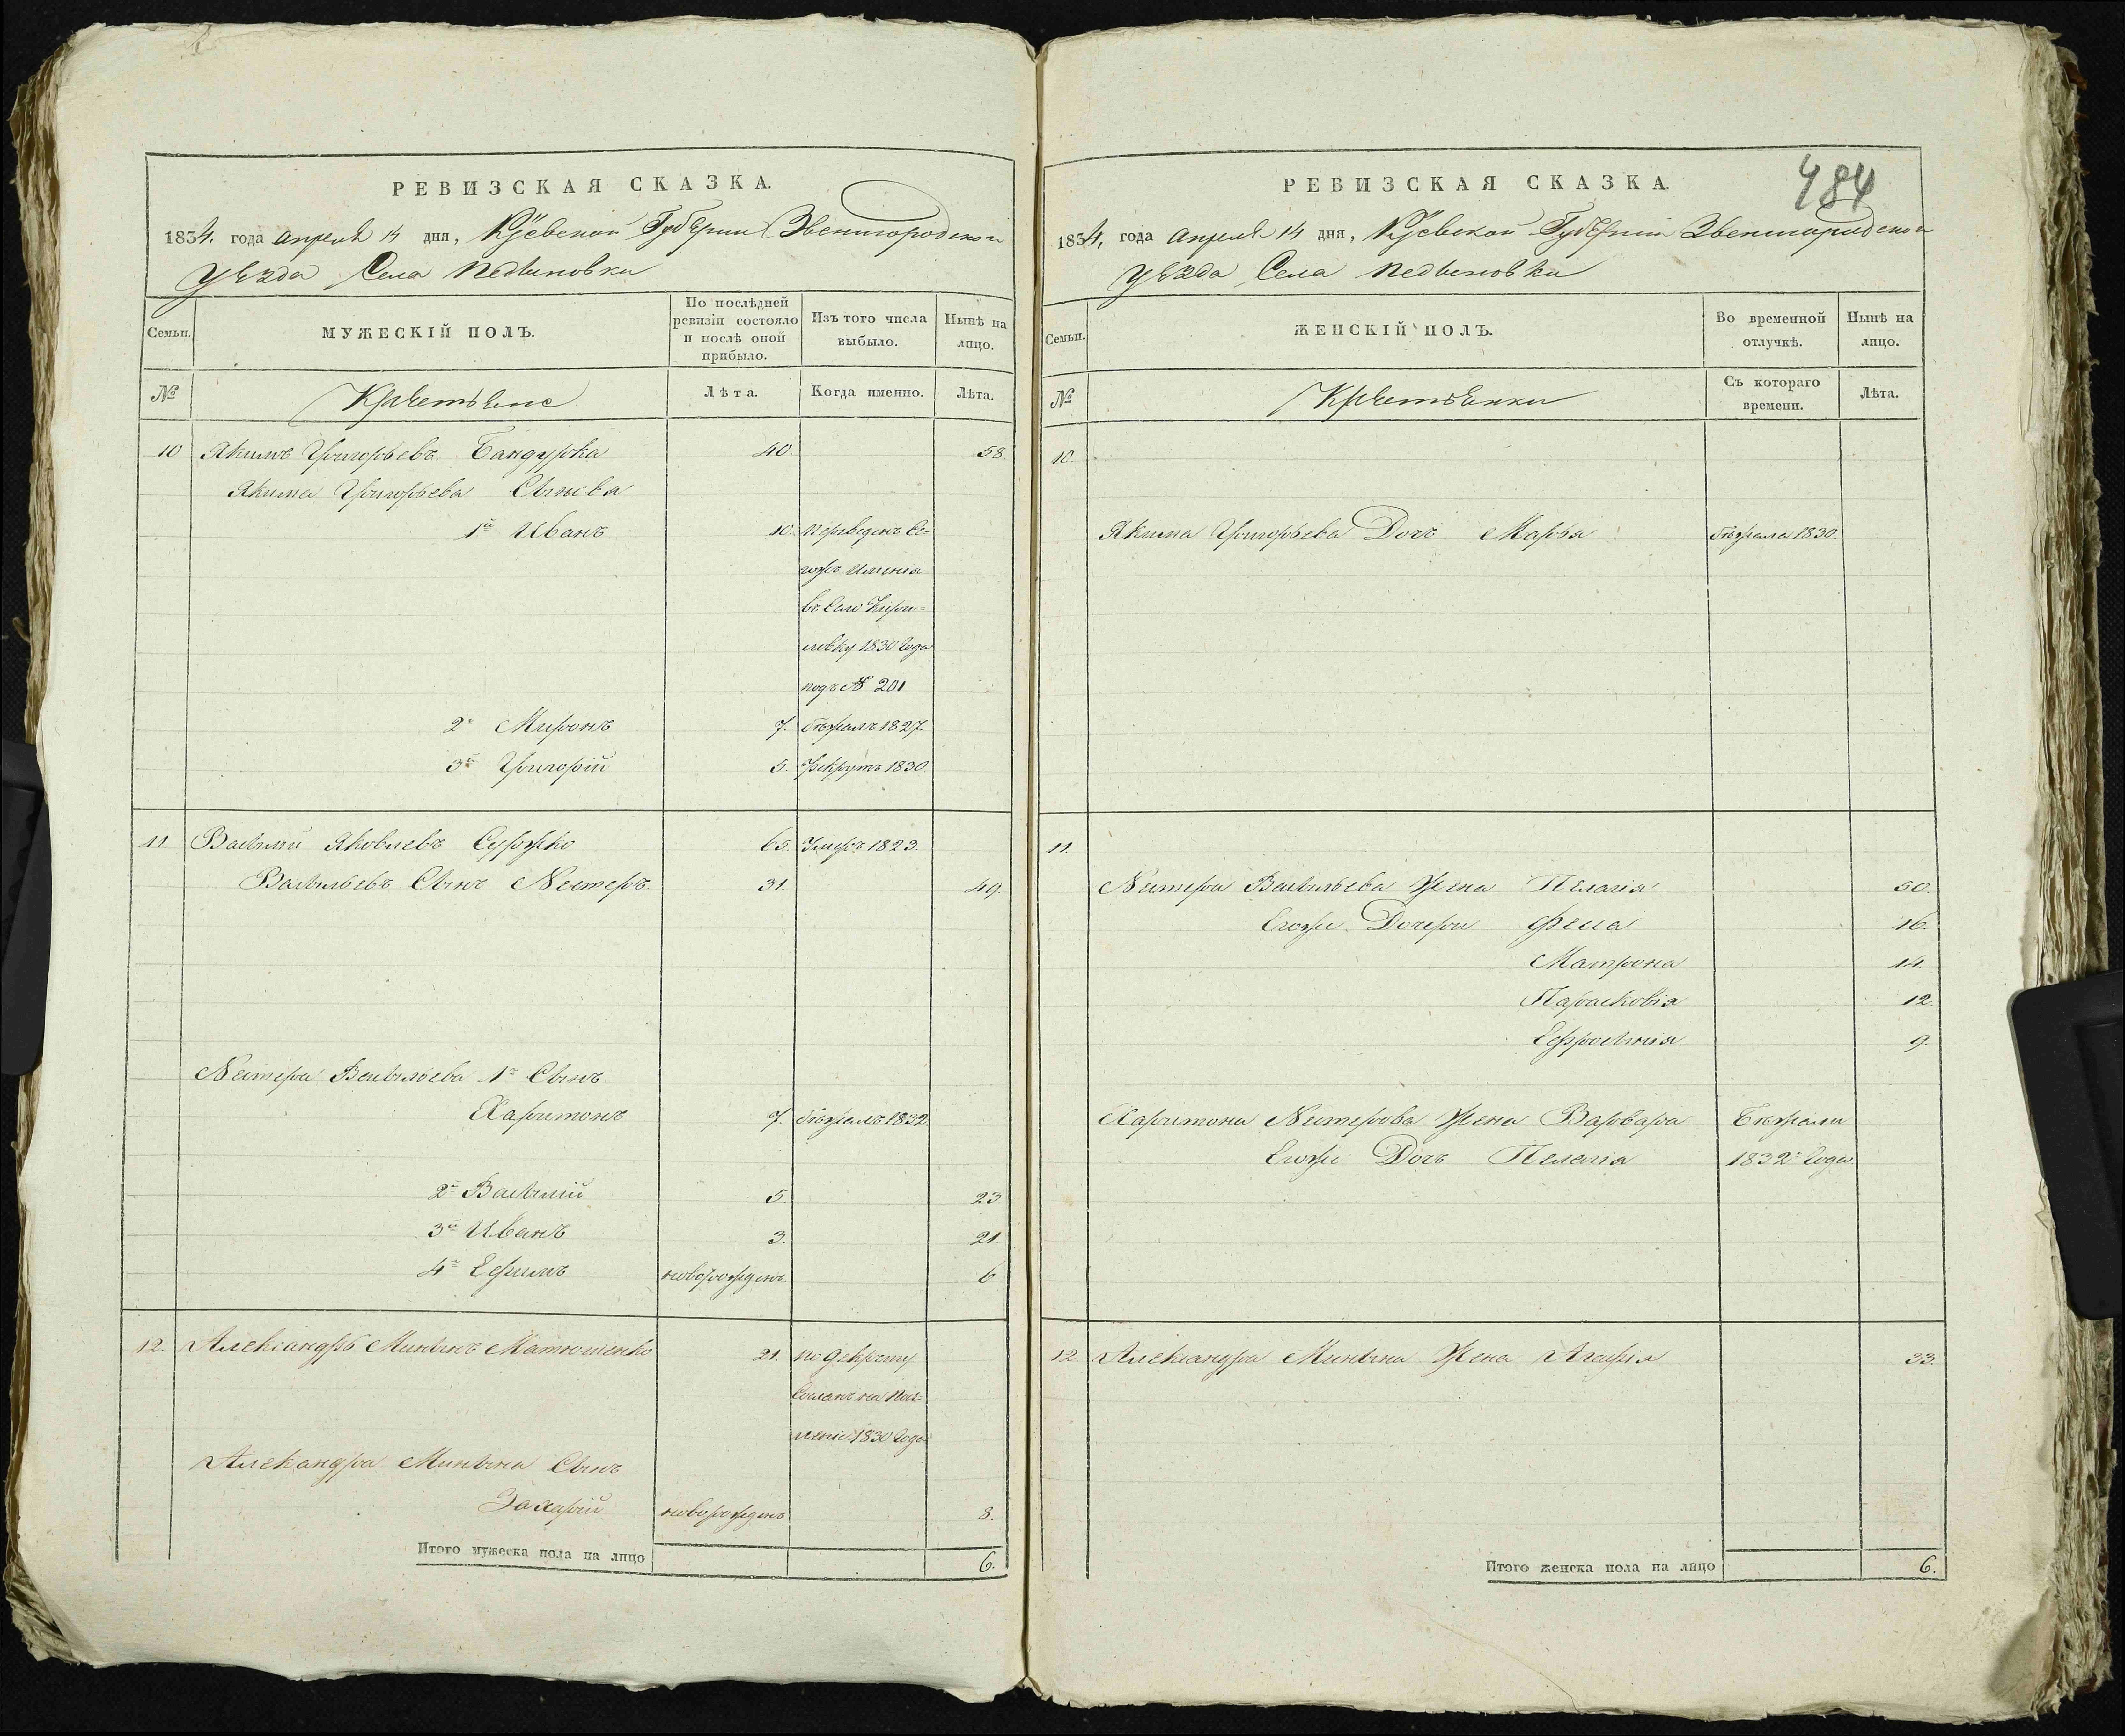 РЕВИЗСКАЯ СКАЗКА.
1834. года апреля 14 дня, Кіевской Губерніи Звенигородской
Уѣзда Села Педыновки
Семьи.
МУЖЕСКІЙ ПОЛЪ.
По послѣдней ревизіи состояло и послѣ оной прибыло.
Изъ того числа выбыло.
Нынѣ на лицо.
№
Крестьяне
Лѣта.
Когда именно.
Лѣта.
10 Якимъ Григорьевъ Бандурка 40. 58.
Якима Григорьева Сынова
1й Иванъ 10. переведенъ Се-
гожъ имѣнія
въ Село Кири-
ловку 1830 года
подъ № 201
2й Миронъ 7. бѣжалъ 1827.
3й Григорій 5. рекрутъ 1830.
11. Василий Яковлевъ Суржко 65. Умеръ 1823.
Васильевъ Сынъ Нестеръ 31. 49.
Нестера Васильева 1й Сынъ
Харитонъ 7. бѣжалъ 1832.
2й Василій 5. 23.
3й Иванъ 3. 21.
4й Ефимъ новорожденъ. 6
12. Александръ Мининъ Матюшенко 21. по декрету
Сосланъ на посе-
леніе 1830 года
Александра Минина Сынъ
Захарій новорожденъ 8.
Итого мужеска пола на лицо 6.
484
РЕВИЗСКАЯ СКАЗКА.
1834, года апреля 14 дня, Кіевской Губерніи Звенигородской
Уѣзда Села Педыновки
Семьи.
ЖЕНСКІЙ ПОЛЪ.
Во временной отлучкѣ.
Нынѣ на лицо.
№
Крестьянки
Съ котораго времени.
Лѣта.
10.
Якима Григорьева Дочь Марья бѣжала 1830.
11.
Нестера Васильева Жена Пелагія 50.
Егоже Дочери Фена 16.
Матрона 14.
Парасковія 12.
Ефросинія 9.
Харитона Нестерова Жена Варвара Бѣжали
Егоже Дочь Пелагія 1832го года
12. Александра Минина Жена Агафія 33.
Итого женска пола на лицо 6.